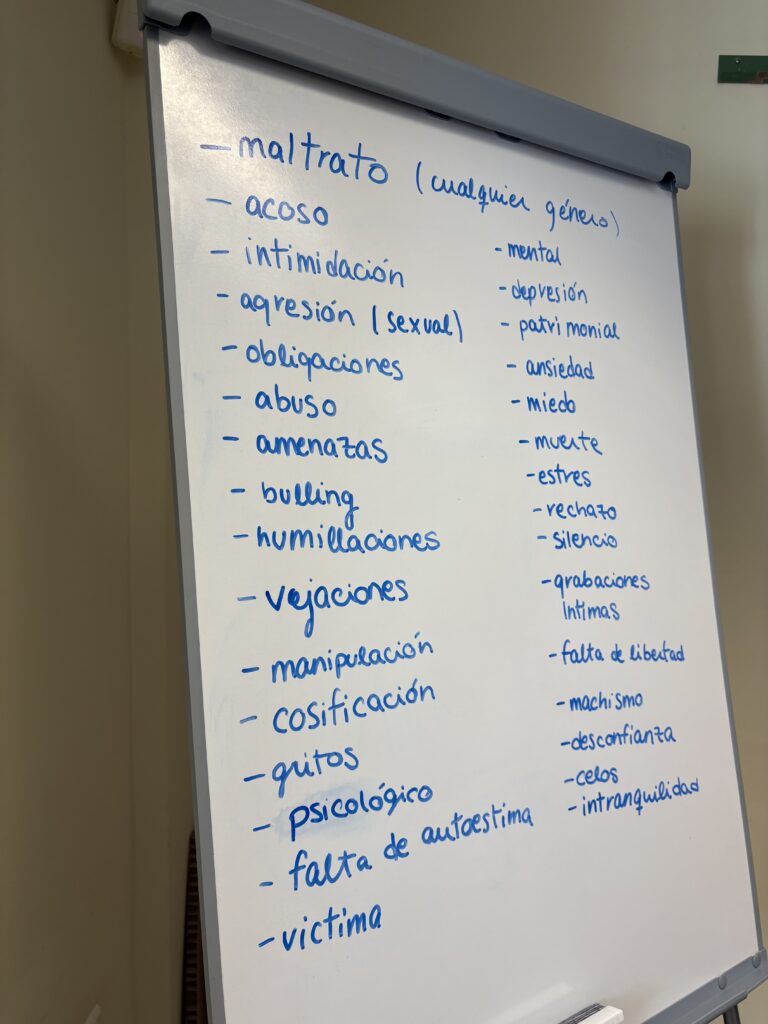 - maltrato (cualquier género)
- acoso
- intimidación
- agresión (sexual)
- obligaciones
- abuso
- amenazas
- bulling
- humillaciones
- vejaciones
- manipulación
- cosificación
- gritos
- psicológico
- falta de autoestima
- victima
- mental
- depresión
- patrimonial
- ansiedad
- miedo
- muerte
- estres
- rechazo
- silencio
- grabaciones
íntimas
- falta de libertad
- machismo
- desconfianza
- celos
- intranquilidad